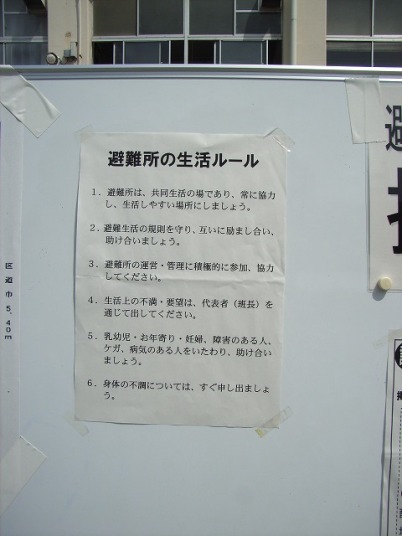 避難所の生活ルール
1．避難所は、共同生活の場であり、常に協力
し、生活しやすい場所にしましょう。
2．避難生活の規則を守り、互いに励まし合い、
助け合いましょう。
3．避難所の運営・管理に積極的に参加、協力
してください。
4．生活上の不満・要望は、代表者（班長）を
通じて出してください。
5．乳幼児・お年寄り・妊婦、障害のある人、
ケガ、病気のある人をいたわり、助け合い
ましょう。
6．身体の不調については、すぐ申し出ましょ
う。
区道市5,40m
避